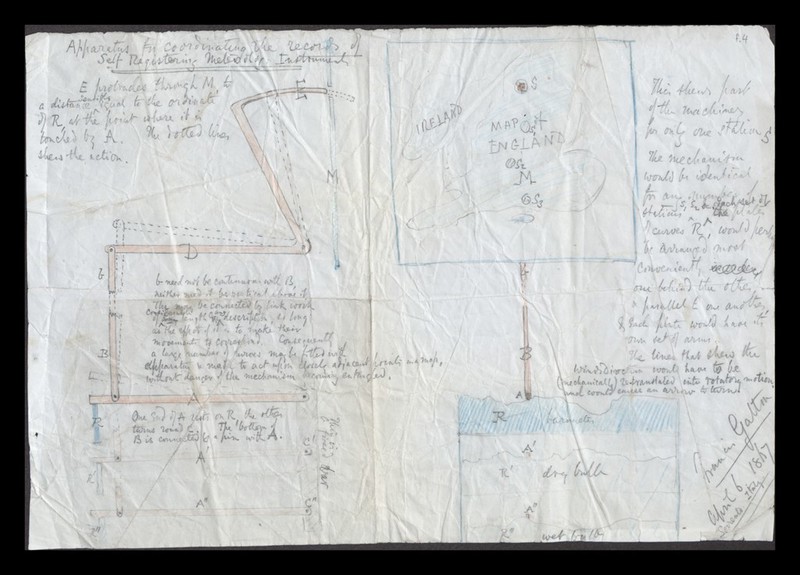 P.4
Apparatus for coordinating the records of
Self Registering Meteorolog. Instruments
E protrudes through M, to
a distance equal to the ordinate
of R at the point where it is
touched by A. The dotted lines
shew the action.
E
M
D
b
B
b need not be continuous with B,
neither need it be vertical above it
may be connected by link work
of any length or description, as long
as the effect of it is to make their
movements to correspond. Consequently
a large number of curves may be fitted with
apparatus & made to act upon closely adjacent points on map,
without danger of the mechanism becoming entangled.
A
R
One End of A rests on R, the other
turns round C. The bottom of
B is connected by a pin with A.
C
A'
C'
R'
A"
C"
R"
S
IRELAND
MAP OF
ENGLAND
S2
M
S3
b
B
A
R
barometer
A'
R'
dry bulb
A"
R"
wet bulb
This shews part
of the machinery
for only one station S
The mechanism
would be identical
for any number of
stations
curves R, would
be arranged most
conveniently,
one behind the other
& parallel to one another
& each plate would have its
own set of arms.
The lines that shew the
wind direction would have to be
(mechanically) retranslated into rotatory motion
and would cause an arrow to turn
Francis Galton
April 6 1867